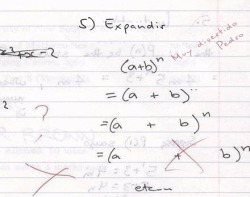 5) Expandir
-2
(a+b)^n
Muy divertido
Pedro
= (a + b)^n
2
?
= (a + b)^n
= (a + b)^n
etc...